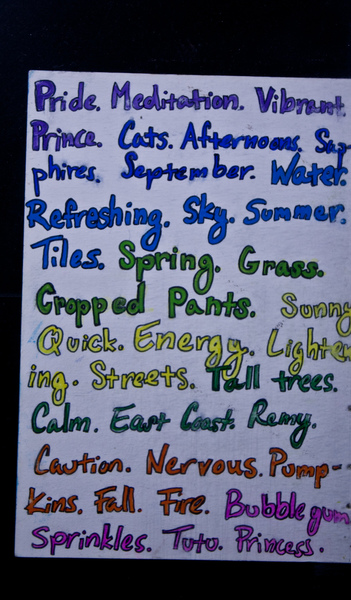 Pride. Meditation. Vibrant
Prince. Cats. Afternoons. Sap-
phires. September. Water.
Refreshing. Sky. Summer.
Tiles. Spring. Grass.
Cropped Pants. Sunny
Quick. Energy. Lighten
ing. Streets. Tall trees.
Calm. East Coast. Remy.
Caution. Nervous. Pump-
kins. Fall. Fire. Bubble gum
Sprinkles. Tutu. Princess.